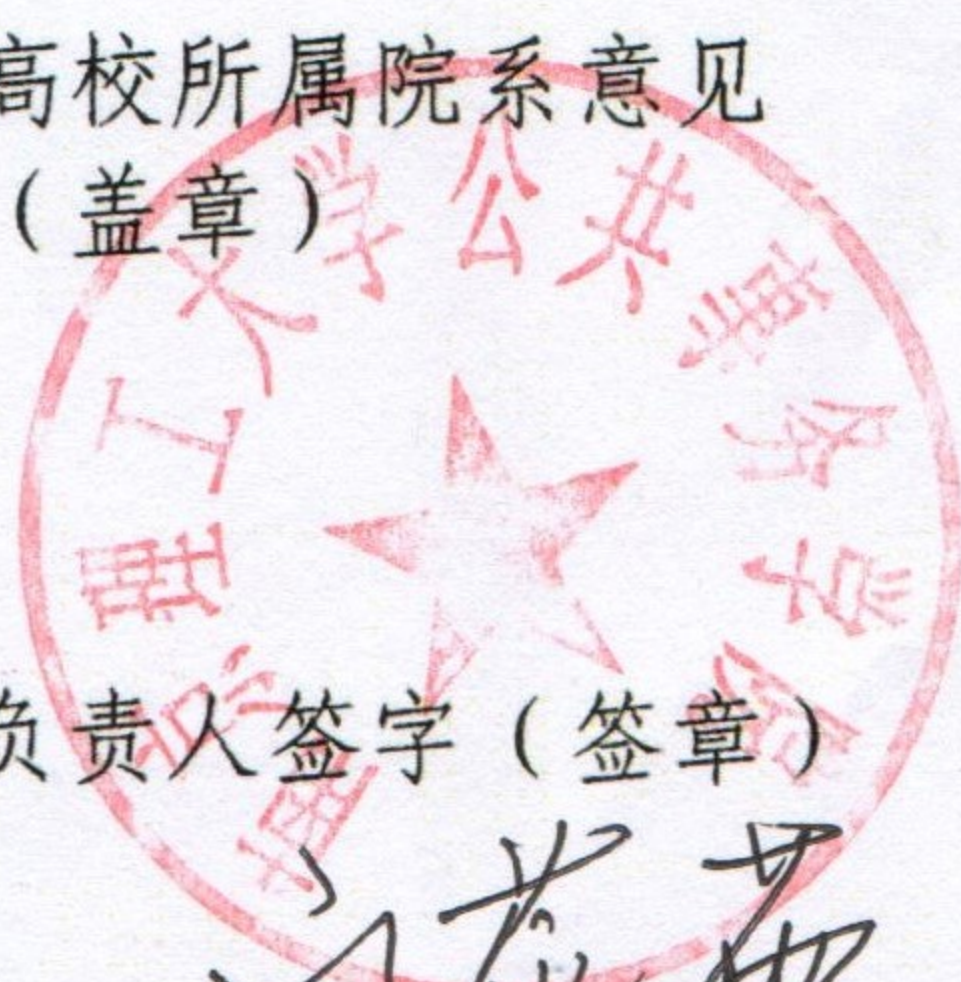 高校所属院系意见
（盖章）
南京理工大学公共事务学院
负责人签字（签章）